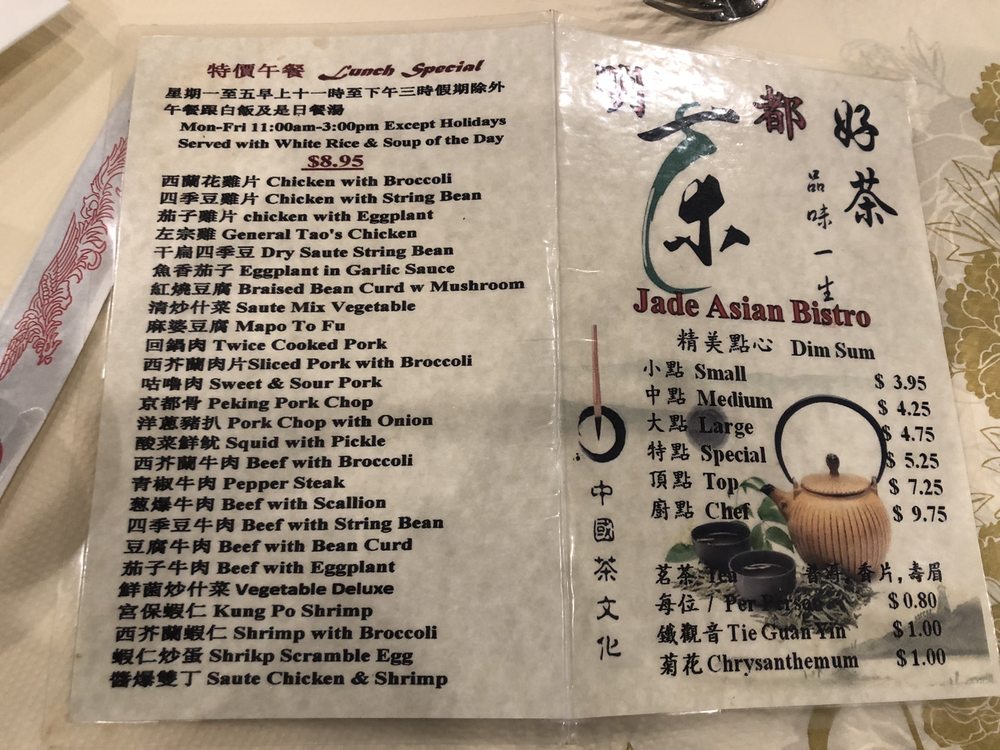 特價午餐 Lunch Special
星期一至五早上十一時至下午三時假期除外
午餐跟白飯及是日餐湯
Mon-Fri 11:00am-3:00pm Except Holidays
Served with White Rice & Soup of the Day
$8.95
西蘭花雞片 Chicken with Broccoli
四季豆雞片 Chicken with String Bean
茄子雞片 chicken with Eggplant
左宗雞 General Tao's Chicken
干扁四季豆 Dry Saute String Bean
魚香茄子 Eggplant in Garlic Sauce
紅燒豆腐 Braised Bean Curd w Mushroom
清炒什菜 Saute Mix Vegetable
麻婆豆腐 Mapo To Fu
回鍋肉 Twice Cooked Pork
西芥蘭肉片Sliced Pork with Broccoli
咕嚕肉 Sweet & Sour Pork
京都骨 Peking Pork Chop
洋蔥豬扒 Pork Chop with Onion
酸菜鮮魷 Squid with Pickle
西芥蘭牛肉 Beef with Broccoli
青椒牛肉 Pepper Steak
葱爆牛肉 Beef with Scallion
四季豆牛肉 Beef with String Bean
豆腐牛肉 Beef with Bean Curd
茄子牛肉 Beef with Eggplant
鮮菌炒什菜 Vegetable Deluxe
宮保蝦仁 Kung Po Shrimp
西芥蘭蝦仁 Shrimp with Broccoli
蝦仁炒蛋 Shrikp Scramble Egg
醬爆雙丁 Saute Chicken & Shrimp
都
好茶
品味一生
Jade Asian Bistro
精美點心 Dim Sum
小點 Small $ 3.95
中點 Medium $ 4.25
大點 Large $ 4.75
特點 Special $ 5.25
頂點 Top $ 7.25
廚點 Chef $ 9.75
茗茶 Tea 香片,壽眉
每位 / Per Person $ 0.80
鐵觀音 Tie Guan Yin $ 1.00
菊花 Chrysanthemum $ 1.00
中國茶文化